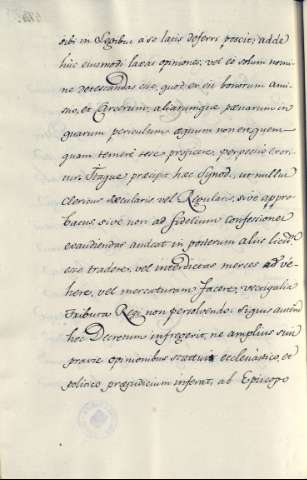 sibi in Legibus a se latis deferri poscit; adde
huc eiusmodi laxas opiniones, vel eo solum nomi-
ne detestandas esse, quod ex eis bonorum amis-
sio, et Carcerum, aliarumque pœnarum in
quarum periculum æquum non est, quem-
quam temerè sese projicere, perpessio oria-
tur. Itaque præcipit hæc Synod., ut nullus
Clericus Sæcularis vel Regularis, sive appro-
batus sive non ad fidelium Confessiones
exaudiendas audeat in posterum aliis licitũ
esse tradere, vel interdictas merces adve-
here, vel mercaturam facere, vectigalia
tributa Regi non persolvendo. Siquis autem
hoc Decretum infregerit, ne amplius suis
pravis opinionibus statui ecclesiastico, et
politico præjudicium inferat, ab Episcopo